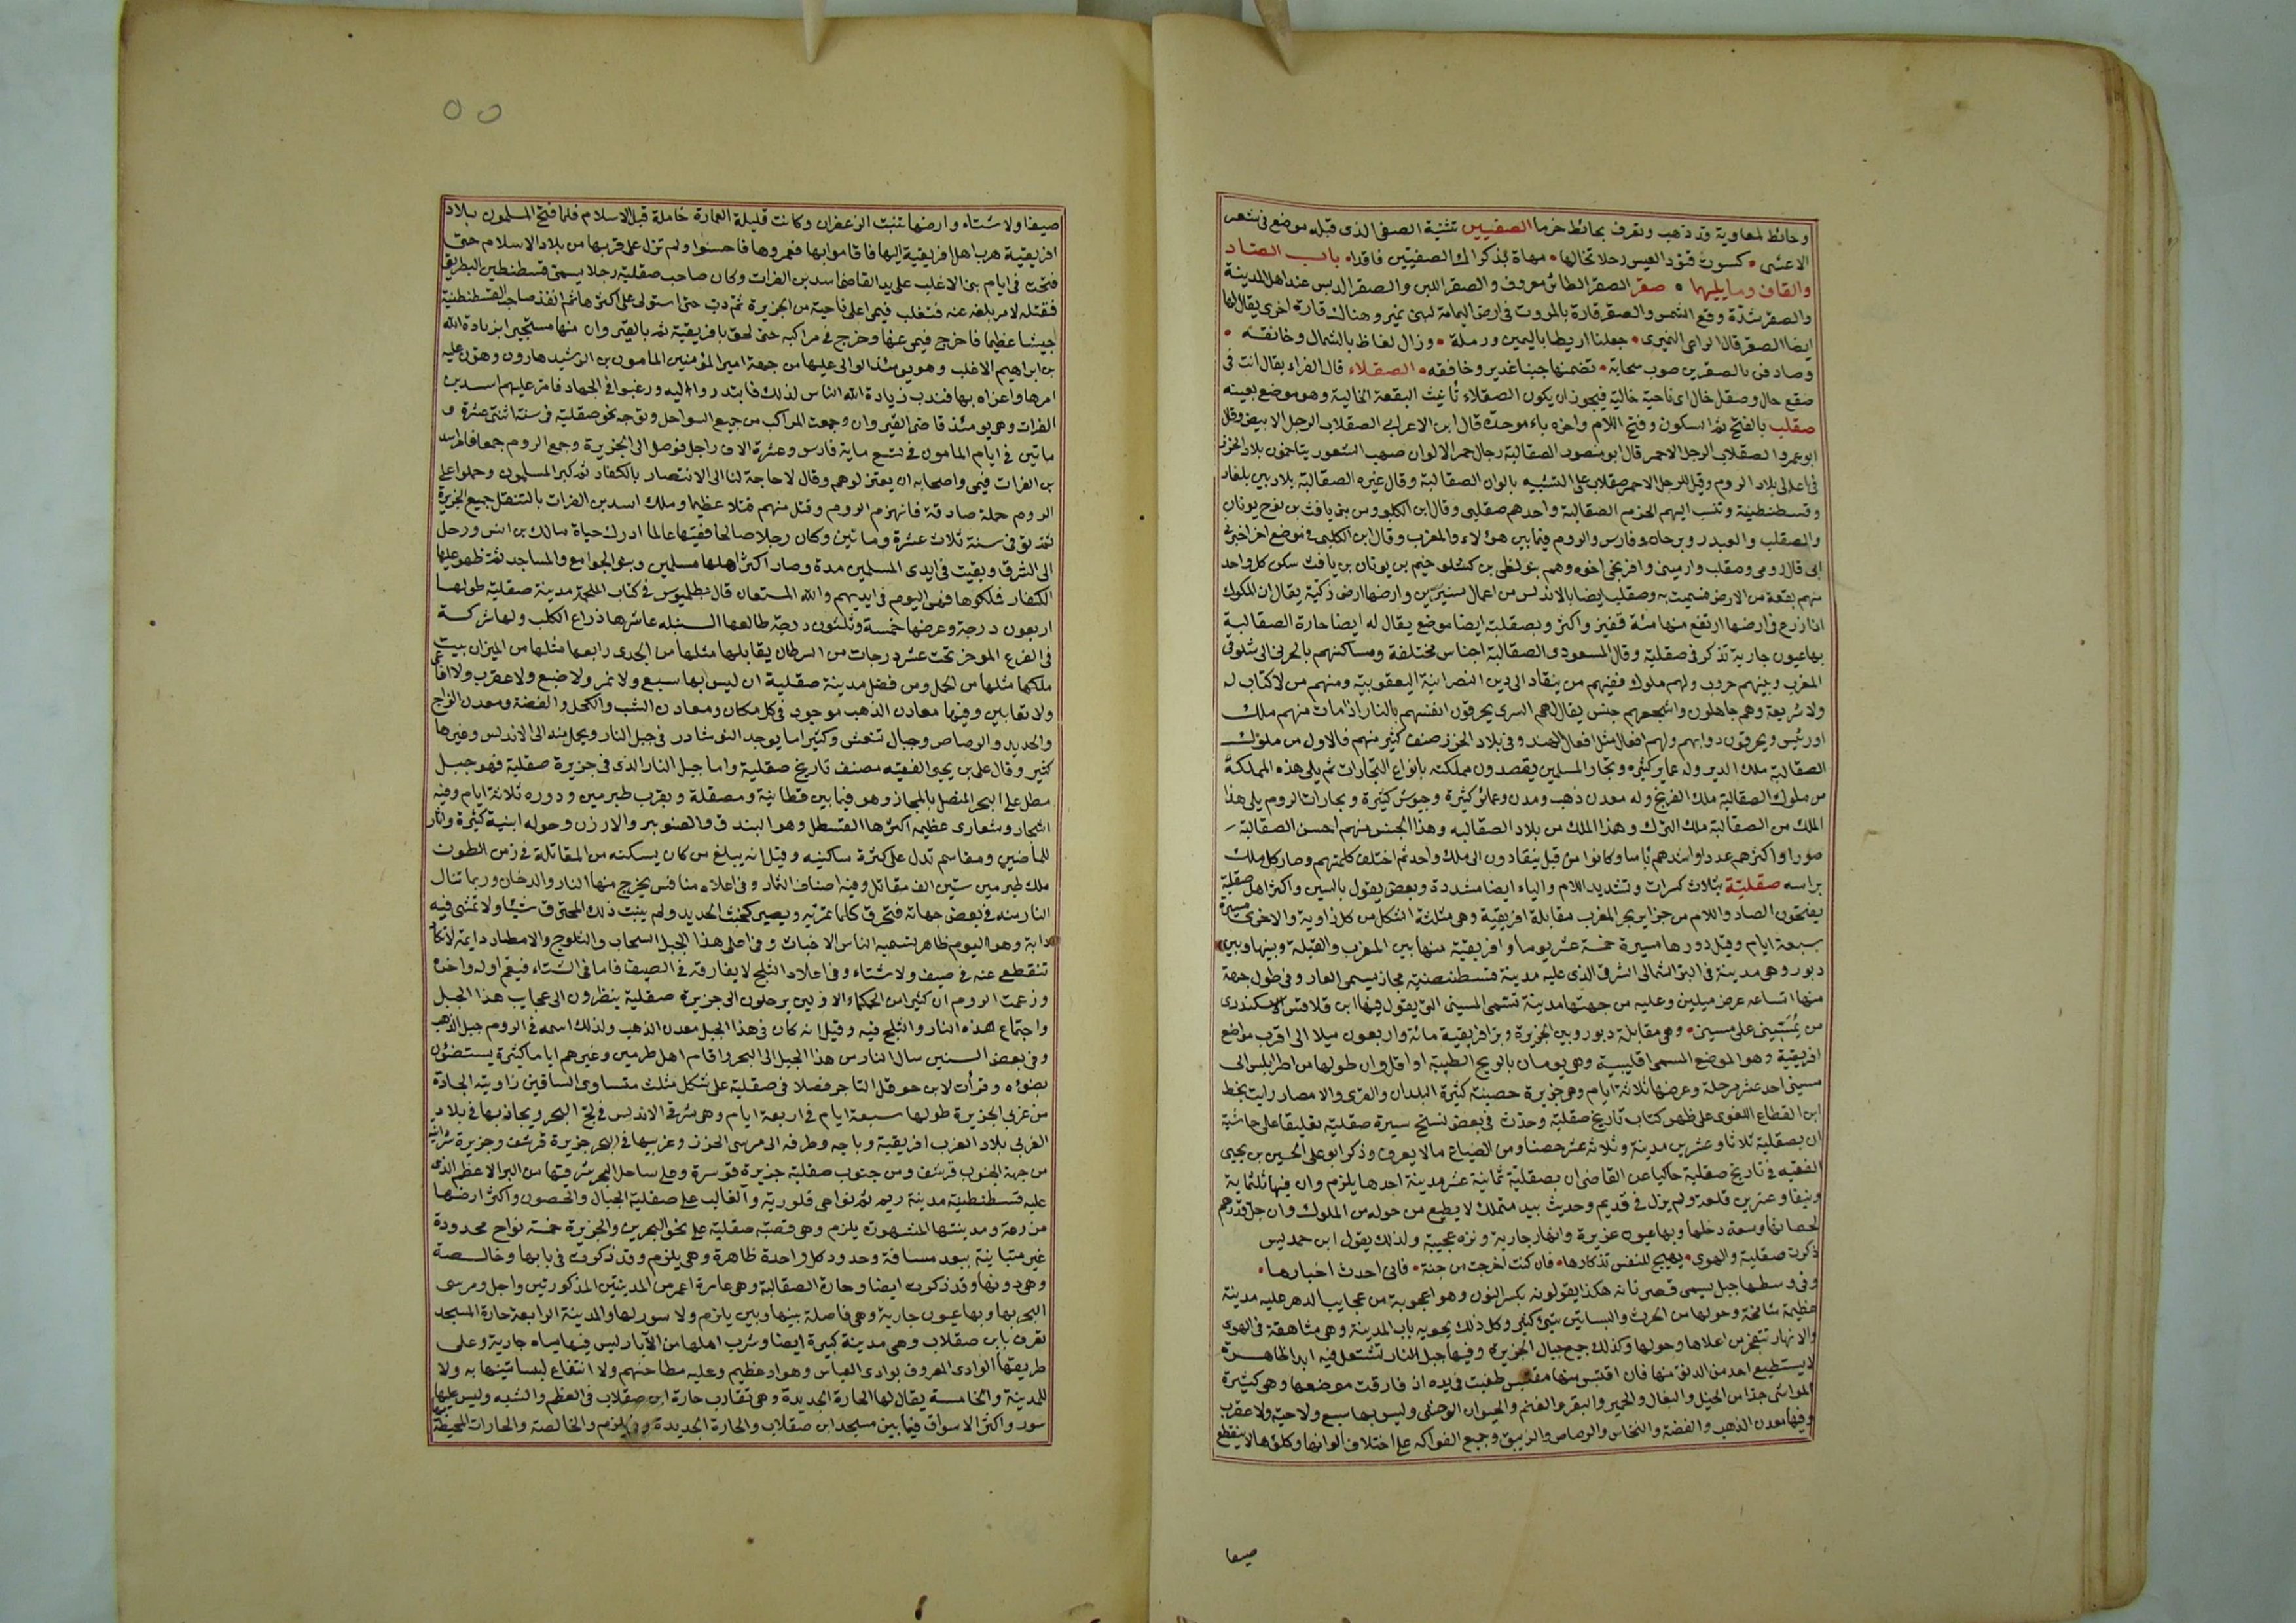 وحائط لمعاوية وقد ذهب ويعرف بحائط خرما الصفيين تثنية الصفى الذى قبله موضع فى شعر
الاعشى كسوت قتود العيس رحلا تخالها مهاة بذكرا ك الصفيين فاقدا باب الصاد
والقاف وما يليهما صقر الصقر الطائر معروف والصقر اللبن والصقر الدبس عند اهل المدينة
والصقر شدة وقع الشمس والصقر قارة بالمروت فى ارض اليمامة لبنى نمير وهناك قارة اخرى يقال لها
ايضا الصقر قال الراعى النميرى جعلنا اريطا باليمين ورملة وزال لغاظ بالشمال وخانقه
وصادفن بالصقرين صوب سحابة تضمنها جبنا غدير وخافقه الصقلاء قال الفراء يقال انت فى
صقع خال وصقل خال اى ناحية خالية فيجوز ان يكون الصقلاء تأنيث البقعة الخالية وهو موضع بعينه
صقلب بالفتح ثم السكون وفتح اللام واخره باء موحدة قال ابن الاعرابى الصقلاب الرجل الابيض وقال
ابو عمرو الصقلاب الرجل الاحمر قال ابو منصور الصقالبة رجال حمر الالوان صهب الشعور يتاخمون بلاد الخزر
فى اعالى بلاد الروم وقيل للرجل الاحمر صقلاب على التشبيه بالوان الصقالبة وقال غيره الصقالبة بلاد بين بلغار
وقسطنطينية وتنسب اليهم الخرم الصقالبة واحدهم صقلبى وقال ابن الكلبى ومن بنى يافث بن نوح يونان
والصقلب والعبدر وبرجان وفارس والروم فيما بين هؤلاء والمغرب وقال ابن الكلبى فى موضع اخر اخبرنى
ابى قال رومى وصقلب وارمينى وافرنجى اخوه وهم بنو لنطى بن كسلوخيم بن يونان بن يافث سكن كل واحد
منهم بقعة من الارض فسميت به وصقلب ايضا بالاندلس من اعمال شنترين وارضها ارض زكية يقال ان المكوك
اذا زرع فى ارضها ارتفع منها مئة قفيز واكثر وبصقلية ايضا موضع يقال له ايضا حارة الصقالبة
بها عيون جارية تذكر فى صقلية وقال المسعودى الصقالبة اجناس مختلفة ومساكنهم بالحربى الى شلو فى
المغرب وبينهم حروب ولهم ملوك فمنهم من ينقاد الى دين النصرانية اليعقوبية ومنهم من لا كتاب له
ولا شريعة وهم جاهلون واشجعهم جنس يقال لهم السرى يحرقون انفسهم بالنار اذا مات منهم ملك
او رئيس ويحرقون دوابهم ولهم افعال مثل افعال الهند وفى بلاد الخزر صنف كثير منهم فالاول من ملوك
الصقالبة ملك الدير وله عماير كثيره وتجار المسلمين يقصدون مملكته بانواع التجارات ثم يلى هذه المملكة
من ملوك الصقالبة ملك الفرنج وله معدن ذهب ومدن وعمائر كثيرة وجيوش كثيرة وتجارات الروم يلى هذا
الملك من الصقالبة ملك الترك وهذا الملك من بلاد الصقالبه وهذا الجنس منهم احسن الصقالبة
صورا واكثرهم عددا واشدهم بأسا وكانوا من قبل ينقادون الى ملك واحد ثم اختلف كلمتهم وصار كل ملك
براسه صقلية بثلاث كسرات وتشديد اللام والياء ايضا مشددة وبعض يقول بالسين واكثر اهل صقلية
يفتحون الصاد واللام من جزاير بحر المغرب مقابلة افريقية وهى مثلثة الشكل من كل زاوية والاخرى مسيرة
سبعة ايام وقيل دورها مسيرة خمسة عشر يوما وافريقية منها بين المغرب والقبلة وبينها وبين
دبور وهى مدينة فى البر الشمالى الشرقى الذى عليه مدينة قسطنطنية مجاز يسمى الفار وفى طول جهة
منها اتساعه عرض ميلين وعليه من جهتها مدينة تسمى المسينى التى يقول فيها ابن قلاقس الاسكندرى
من مسينى على مسينى وهى مقابلة دبور وبين الجزيرة وبر افريقية مائة واربعون ميلا الى اقرب مواضع
افريقية وهو الموضع المسمى اقليبية وهى يومان بالريح الطيبة او اقل وان طولها من اطرابلس الى
مسينى احد عشر مرحلة وعرضها ثلاثة ايام وهى جزيرة حصينة كثيرة البلدان والقرى والامصار رايت بخط
ابن القطاع اللغوى على ظهر كتاب تاريخ صقلية وحدث فى بعض نسخ سيرة صقلية تعليقا على حاشية
ان بصقلية ثلاثا وعشرين مدينة وثلاثه عشر حصنا ومن الضياع ما لا يعرف وذكر ابو على الحسين بن يحيى
الفقيه فى تاريخ صقلية حاكيا عن القاضى ان بصقلية ثمانية عشر مدينة احدها يلزم وان فيها ثلثماية
ونيفا وعشرين قلعة ولم يزل فى قديم وحديث بيد متملك لا يطيع من حوله من الملوك وان جل قدرهم
لحصانتها وسعة دخلها وبها عيون غزيرة وانهار جارية ونزه عجيبة ولذلك يقول ابن حمديس
ذكرت صقلية والهوى يهيج للنفس تذكارها فان كنت اخرجت من جنة فانى احدث اخبارها
وفى وسطها جبل يسمى قصر نانه هكذا يقولونه بكسر النون وهو اعجوبة من عجايب الدهر عليه مدينة
عظيمة شامخة وحولها من الحرث والبساتين شئ كثير وكل ذلك يحويه باب المدينة وهى شاهقة فى الهوى
والانهار تتفجر من اعلاها وحولها وكذلك جميع جبال الجزيرة وفيها جبل النار تشتعل فيه ابدا ظاهرة
لا يستطيع احد من الدنو منها فان اقتبس منها مقتبس طفيت فى يده اذ فارقت موضعها وهى كثيرة
المواشى جدا من الخيل والبغال والحمير والبقر والغنم والحيوان الوحشى وليس بها سبع ولا حية ولا عقرب
وفيها معدن الذهب والفضة والنحاس والرصاص والزيبق وجميع الفواكه على اختلاف انواعها وكلؤها لا ينقطع
صيفا
٥٥
صيفا ولا شتاء وارضها تنبت الزعفران وكانت قليلة العمارة خاملة قبل الاسلام فلما فتح المسلمون بلاد
افريقية هرب اهل افريقية اليها فاقاموا بها فعمروها فاحسنوا ولم تزل على قربها من بلاد الاسلام حتى
فتحت فى ايام بنى الاغلب على يد القاضى اسد بن الفرات وكان صاحب صقلية رجلا يسمى قسطنطين البطريق
فقتله لامر بلغه عنه فتغلب فيمى على ناحية من الجزيرة ثم دب حتى استولى على اكثرها ثم انفذ صاحب القسطنطنية
جيشا عظيما فاخرج فيمى عنها وخرج فى مراكبه حتى لحق بافريقية ثم بالقيروان منها مستجيرا بزيادة الله
بن ابراهيم الاغلب وهو يومئذ الوالى عليها من جهة امير المؤمنين المامون بن الرشيد هارون وهون عليه
امرها واغراه بها فندب زيادة الله الناس لذلك فابتدروا اليه ورغبوا فى الجهاد فامر عليهم اسد بن
الفرات وهو يومئذ قاضى القيروان وجمعت المراكب من جميع السواحل وتوجه نحو صقلية فى سنة اثنتى عشرة و
مائتين فى ايام المامون فى تسع ماية فارس وعشرة الاف راجل فوصل الى الجزيرة وجمع الروم جمعا فامر اسد
بن الفرات فيمى واصحابه ان يعتزلوهم وقال لا حاجة لنا الى الانتصار بالكفار ثم كبر المسلمون وحملوا على
الروم حملة صادقة فانهزم الروم وقتل منهم قتلا عظيما وملك اسد بن الفرات بالتنقل جميع الجزيرة
ثم توفى فى سنة ثلاث عشرة ومائتين وكان رجلا صالحا فقيها عالما ادرك حياة مالك بن انس ورحل
الى الشرق وبقيت فى ايدى المسلمين مدة وصار اكثر اهلها مسلمين وبنوا الجوامع والمساجد ثم ظهر عليها
الكفار فملكوها فهى اليوم فى ايديهم والله المستعان قال بطلميوس فى كتاب الملحمة مدينة صقلية طولها
اربعون درجة وعرضها خمسة وثلثون درجة طالعها السنبله عاشرها ذراع الكلب ولها شركة
فى الفرع الموخر تحت عشر درجات من السرطان يقابلها مثلها من الجدى رابعها مثلها من الميزان بيت
ملكها مثلها من الحمل ومن فضل مدينة صقلية ان ليس بها سبع ولا نمر ولا ضبع ولا عقرب ولا افاعى
ولا ثعابين وفيها معادن الذهب موجود فى كل مكان ومعادن الشب والكحل والفضة ومعدن الزاج
والحديد والرصاص وجبال تنعش وكثيرا ما يوجد النوشادر فى جبل النار ويحمل منه الى الاندلس وغيرها
كثير وقال على بن يحيى الفقيه مصنف تاريخ صقلية واما جبل النار الذى فى جزيرة صقلية فهو جبل
مطل على البحر المتصل بالمجاز وهو فيما بين قطانية ومصقلة وبقرب طبرمين ودوره ثلاثة ايام وفيه
اشجار وشعارى عظيمة اكثرها القسطل وهو البندق والصنوبر والارزن وحوله ابنية كثيرة واثار
للماضين ومقاسم تدل على كثرة ساكنيه وقيل انه يبلغ من كان يسكنه من المقاتلة فى زمن الطورت
ملك طبرمين ستين الف مقاتل وفيه اصناف الثمار وفى اعلاه منافس يخرج منها النار والدخان وربما تنال
النار منه فى بعض جهاته فتحرق كلما تمر به ويصير كخبث الحديد ولم ينبت ذلك المحترق شيئا ولا تمشى فيه
دابة وهو اليوم ظاهر تسميه الناس الاخباث وفى اعلى هذا الجبل السحاب والثلوج والامطار دايمة لا تكاد
تنقطع عنه فى صيف ولا شتاء وفى اعلاه الثلج لا يفارقه فى الصيف فاما فى الشتاء فيعم اوله واخره
وزعمت الروم ان كثيرا من الحكماء الاولين يرحلون الى جزيرة صقلية ينظرون الى عجايب هذا الجبل
واجتماع هذه النار والثلج فيه وقيل انه كان فى هذا الجبل معدن الذهب ولذلك اسمه فى الروم جبل الذهب
وفى بعض السنين سال النار من هذا الجبل الى البحر واقام اهل طبرمين وغيرهم اياما كثيرة يستضؤن
بضوئه وقرأت لابن حوقل التاجر فصلا فى صقلية على شكل مثلث متساوى الساقين زاويته الحادة
من غربى الجزيرة طولها سبعة ايام فى اربعة ايام وهى شرقى الاندلس فى لج البحر ويحاذيها فى بلاد
الغربى بلاد الغرب افريقية وباجه وطرفه الى مرسى الخزر وغربيها فى البحر جزيرة قرشف وجزيرة سردانيه
من جهة الجنوب قرشف ومن جنوب صقلية جزيرة قوسرة وعلى ساحل البحر شرقيها من البر الاعظم الذى
عليه قسطنطينية مدينة ريو ثم نواحى قلورية والغالب على صقلية الجبال والحصون واكثر ارضها
مزرعة ومدينتها المشهورة يلزم وهى قصبة صقلية على نحو البحرين والجزيرة خمسة نواح محدودة
غير متباينة ببعد مسافة وحدود كل واحدة ظاهرة وهى يلزم وقد ذكرت فى بابها وخالصة
وهى دونها وقد ذكرت ايضا وحارة الصقالبة وهى عامرة اعمر من المدينتين المذكورتين واجل ومرسى
البحر بها وبها عيون جارية وهى فاصلة بينها وبين يلزم ولا سور لها والمدينة الرابعة حارة المسجد
تعرف بابن صقلاب وهى مدينة كبيرة ايضا وشرب اهلها من الآبار ليس فيها مياه جارية وعلى
طريقها الوادى المعروف بوادى العباس وهو واد عظيم وعليه مطاحنهم ولا انتفاع لبساتينها به ولا
للمدينة والخامسة يقال لها الحارة الجديدة وهى تقارب حارة ابن صقلاب فى العظم والشبه وليس عليها
سور واكثر الاسواق فيما بين مسجد ابن صقلاب والحارة الجديدة وفى يلزم والخالصة والحارات المحيطة